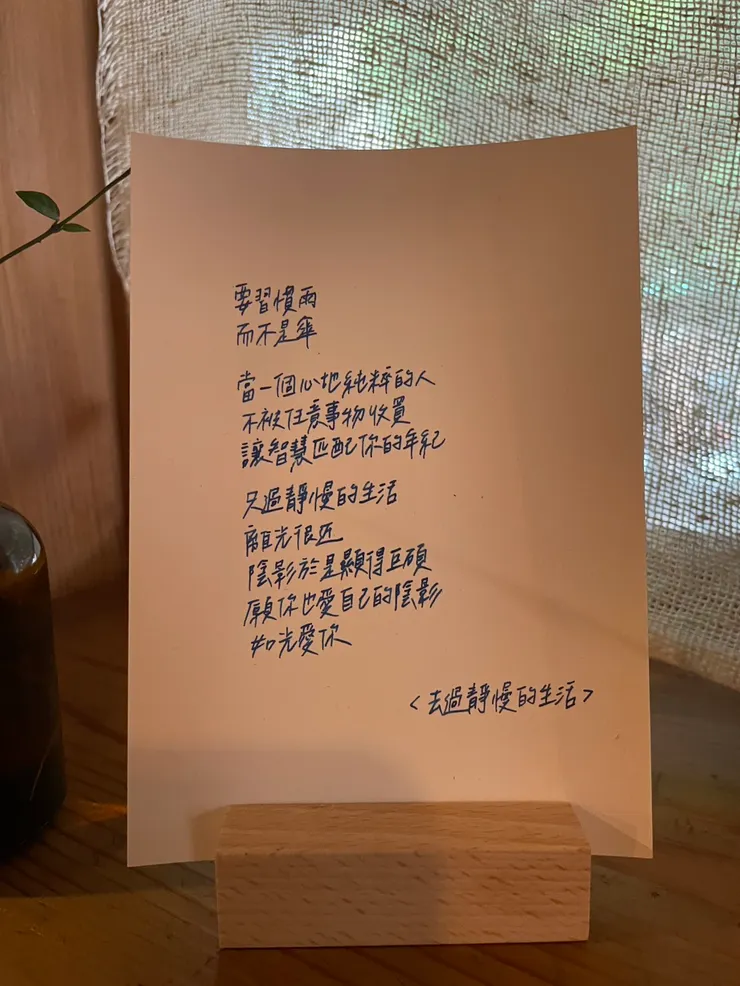 要習慣雨
而不是傘
當一個心地純粹的人
不被任意事物收買
讓智慧匹配你的年紀
只過靜慢的生活
離光很近
陰影於是顯得巨碩
願你也愛自己的陰影
如光愛你
<去過靜慢的生活>